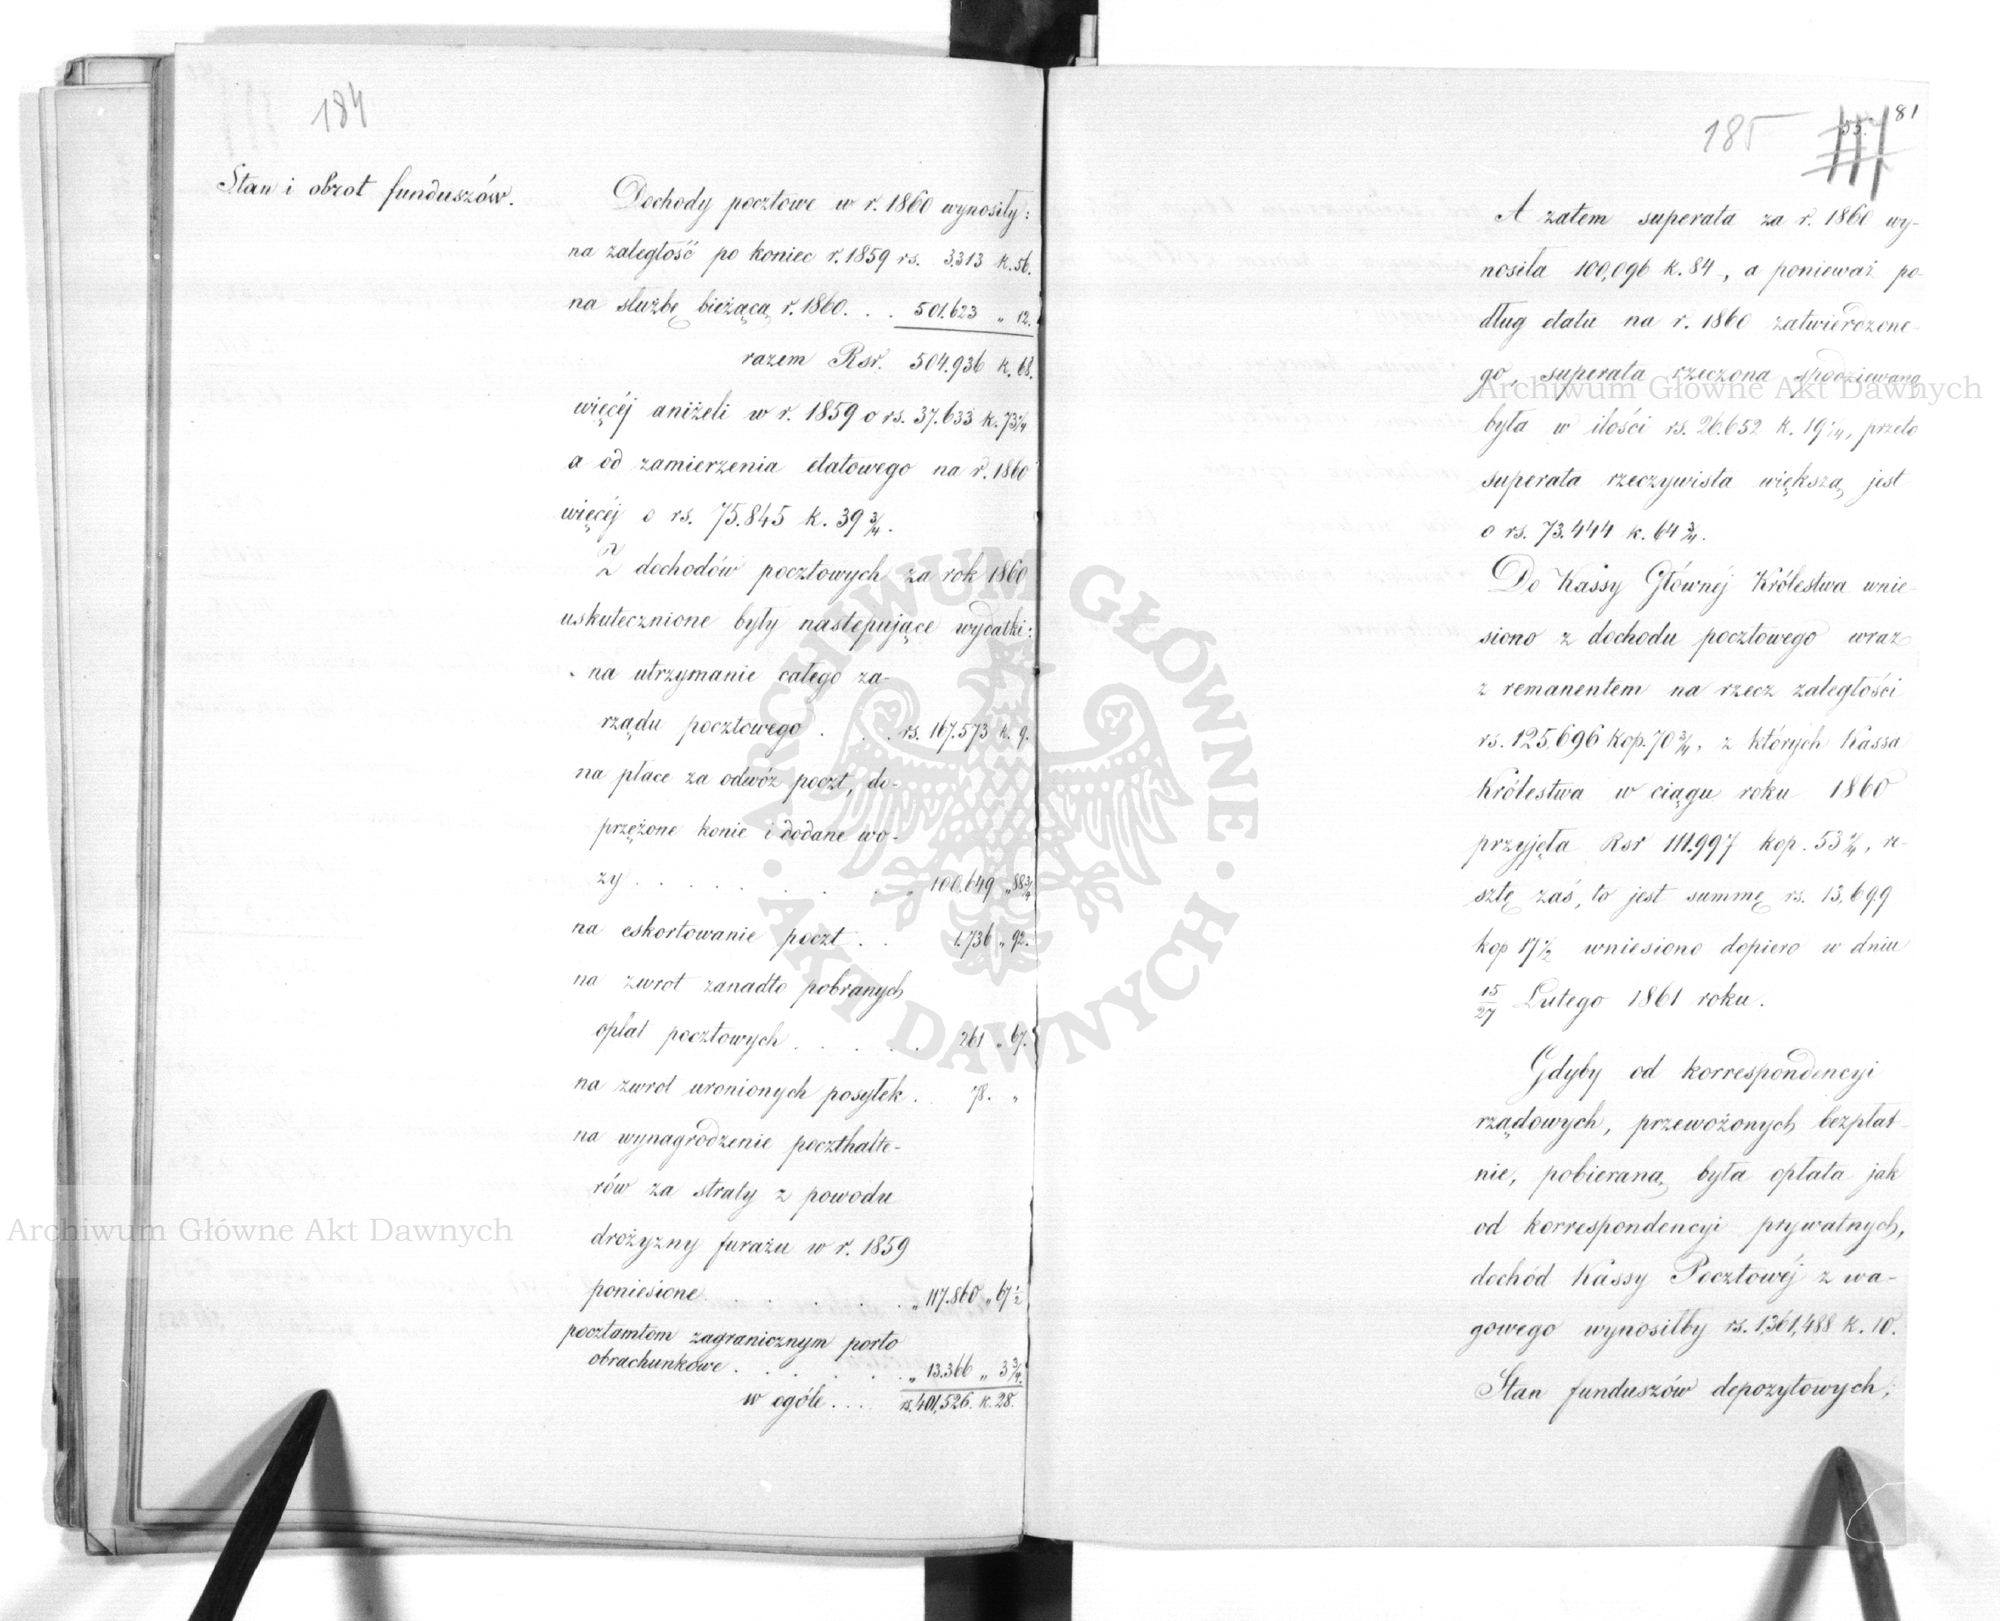 184
Stan i obrot funduszów.
Dochody pocztowe w r. 1860 wynosiły:
na zaległość po koniec r. 1859 rs. 3.313 k. 56.
na służbę bieżącą r. 1860. . . 501.623 „ 12.
razem Rsr. 504.936 k. 68.
więcéj aniżeli w r. 1859 o rs. 37.633 k. 73 1/4
a od zamierzenia etatowego na r. 1860
więcéj o rs. 75.845 k. 39 3/4.
Z dochodów pocztowych za rok 1860
uskutecznione były następujące wydatki:
na utrzymanie całego za-
rządu pocztowego . . . rs. 167.573 k. 9.
na płace za odwóz poczt, do-
przężone konie i dodane wo-
zy . . . . . . . „ 100.649 „ 88 3/4
na eskortowanie poczt . . 1.736 „ 92.
na zwrot zanadto pobranych
opłat pocztowych . . . . . 261 „ 67.
na zwrot uronionych posyłek . 78. „
na wynagrodzenie poczthalte-
rów za straty z powodu
drożyzny furażu w r. 1859
poniesione . . . . . . „ 117.860 „ 67 1/2
pocztamtom zagranicznym porto
obrachunkowe . . . . . „ 13.366 „ 3 3/4.
w ogóle . . . rs. 401,526. k. 28.
185
81
A zatem superata za r. 1860 wy-
nosiła 100,096 k. 84, a ponieważ po-
dług etatu na r. 1860 zatwierdzone-
go, superata rzeczona spodziewaną
była w ilości rs. 26.652 k. 19 1/4, przeto
superata rzeczywista większą jest
o rs. 73.444 k. 64 3/4.
Do Kassy Głównéj Królestwa wnie-
siono z dochodu pocztowego wraz
z remanentem na rzecz zaległości
rs. 125,696 kop. 70 3/4, z których Kassa
Królestwa w ciągu roku 1860
przyjęła Rsr 111.997 kop. 53 1/4, re-
sztę zaś, to jest summę rs. 13,699
kop 17 1/2 wniesiono dopiero w dniu
15/27 Lutego 1861 roku.
Gdyby od korrespondencyi
rządowych, przewożonych bezpłat-
nie, pobieraną była opłata jak
od korrespondencyi prywatnych,
dochód Kassy Pocztowéj z wa-
gowego wynosiłby rs. 1,361,488 k. 10.
Stan funduszów depozytowych,
Archiwum Główne Akt Dawnych
Archiwum Główne Akt Dawnych
ARCHIWUM GŁÓWNE · AKT DAWNYCH ·